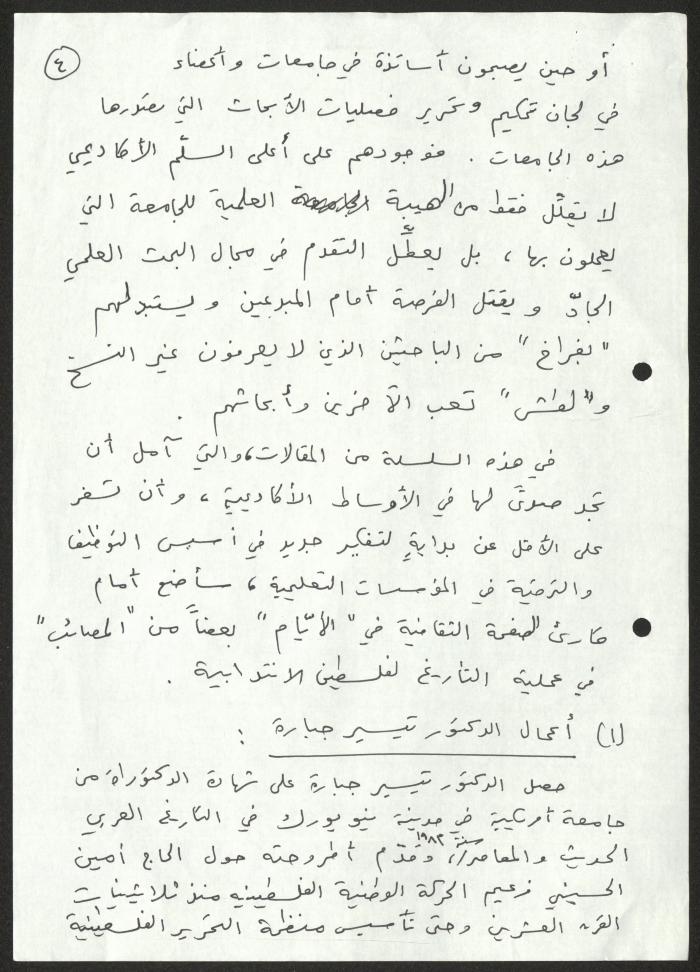 ٤
أو حين يصبحون أساتذة في جامعات وأعضاء
في لجان تحكيم وتحرير فصليات الأبحاث التي تصدرها
هذه الجامعات . فوجودهم على أعلى السلّم الأكاديمي
لا يقلّل فقط من الهيبة العلمية للجامعة التي
يعملون بها ، بل يعطّل التقدم في مجال البحث العلمي
الجادّ و يقتل الفرصة أمام المبدعين و يستبدلهم
"بفراخ" من الباحثين الذين لا يعرفون غير النسخ
و"لطش" تعب الآخرين وأبحاثهم .
في هذه السلسلة من المقالات، والتي آمل أن
تجد صدىً لها في الأوساط الأكاديمية ، وأن تسفر
على الأقل عن بدايةٍ لتفكير جديد في أسس التوظيف
والترقية في المؤسسات التعليمية ، سأضع أمام
قارئ الصفحة الثقافية في "الأيّام" بعضاً من "المصائب"
في عملية التأريخ لفلسطين الانتدابية .
(١) أعمال الدكتور تيسير جبارة :
حصل الدكتور تيسير جبارة على شهادة الدكتوراة من
جامعة أمريكية في مدينة نيويورك في التاريخ العربي
الحديث والمعاصر سنة ١٩٨٢، وقدّم أطروحته حول الحاج أمين
الحسيني زعيم الحركة الوطنية الفلسطينية منذ ثلاثينيات
القرن العشرين وحتى تأسيس منظمة التحرير الفلسطينية